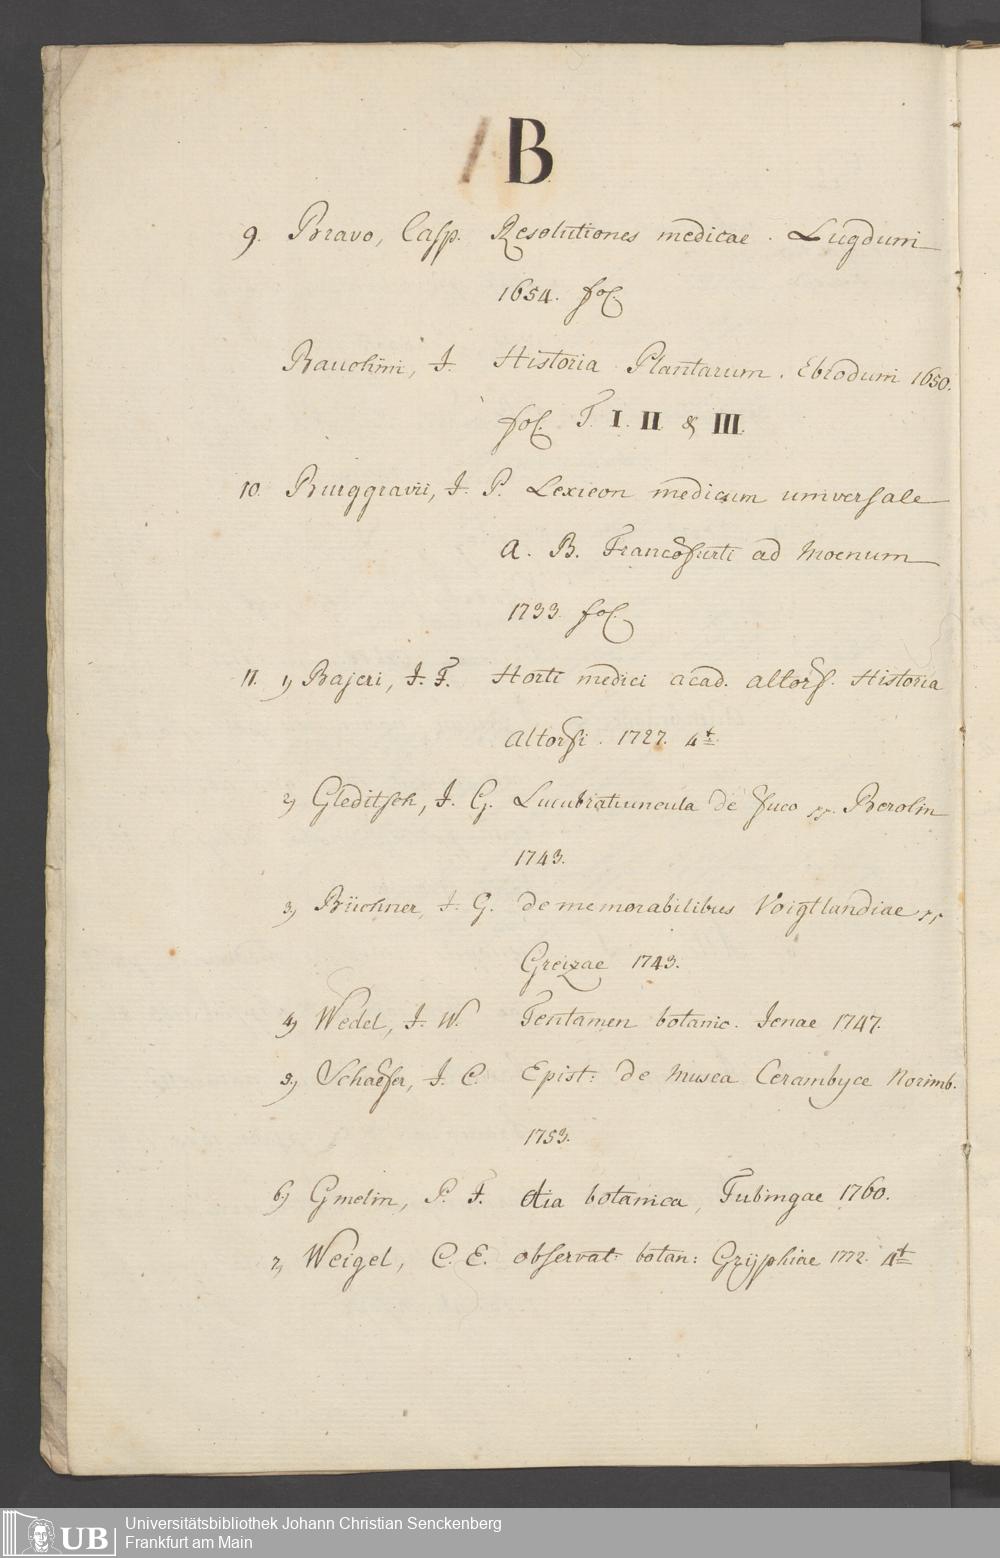 B
9. Bravo, Casp. Resolutiones medicae. Lugduni
1654. fol.
Bauohini, J. Historia Plantarum. Ebroduni 1650.
fol. T. I. II & III.
10. Burggravii, J. P. Lexicon medicum universale
A. B. Francofurti ad Moenum
1733. fol.
11. 1) Bajeri, J. F. Horti medici acad. altorf. Historia
Altorfi. 1727. 4t.
2) Gleditsch, J. G. Lucubratiuncula de Fuco pp. Berolin
1743.
3) Büchner, J. G. de memorabilibus Voigtlandiae pp
Greizae 1743.
4) Wedel, J. W. Tentamen botanic. Jenae 1747.
5) Schaefer, J. C. Epist: de Musca Cerambyce Norimb.
1753.
6) Gmelin, P. F. Otia botanica, Tubingae 1760.
7) Weigel, C. E. observat: botan: Gryphiae 1772. 4t
UB Universitätsbibliothek Johann Christian Senckenberg
Frankfurt am Main